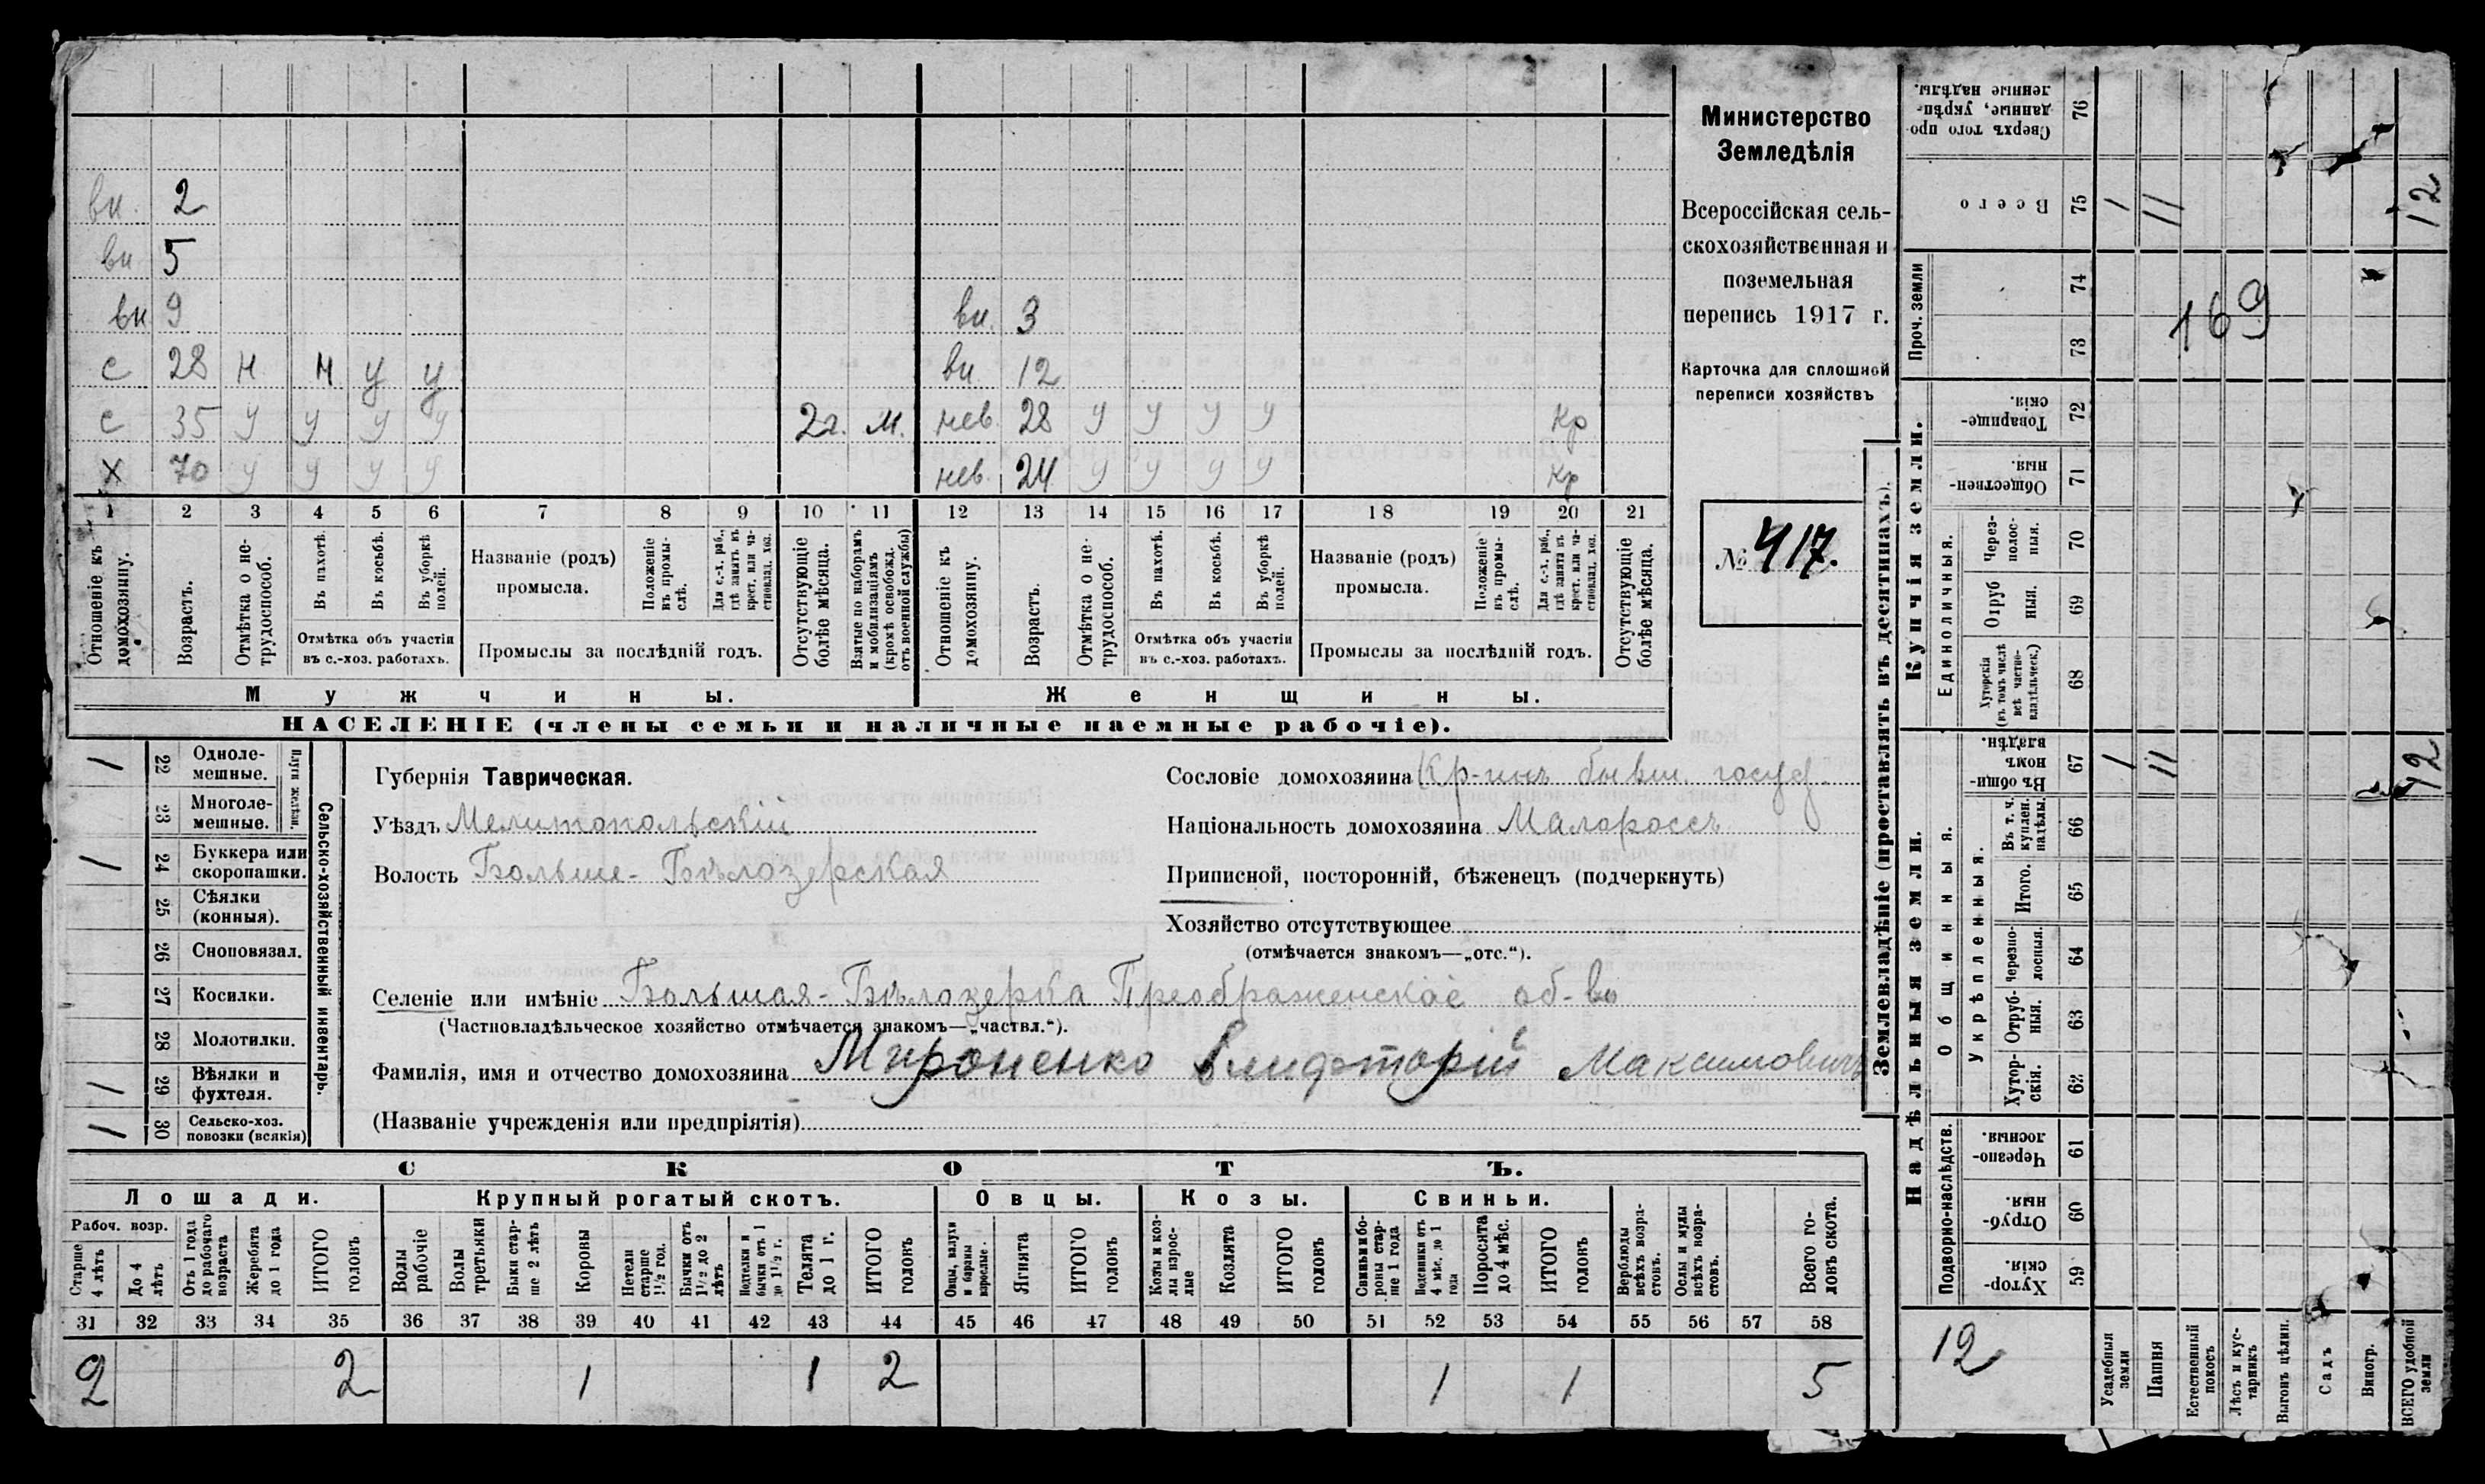 Министерство
Земледѣлія
Всероссійская сель-
скохозяйственная и
поземельная
перепись 1917 г.
Карточка для сплошной
переписи хозяйствъ
№ 417.
вн. 2
вн 5
вн 9 вн. 3
с 28 н н у у вн. 12
с 35 у у у у 2г. м. нев. 28 у у у у кр
х 70 у у у у нев. 24 у у у у кр
1 2 3 4 5 6 7 8 9 10 11 12 13 14 15 16 17 18 19 20 21
Отношеніе къ домохозяину.
Возрастъ.
Отмѣтка о не-трудоспособ.
Въ пахотѣ.
Въ косьбѣ.
Въ уборкѣ полей.
Отмѣтка объ участіи
въ с.-хоз. работахъ.
Названіе (родъ)
промысла.
Положеніе въ промы-слѣ.
Для с.-х. раб., гдѣ занятъ въ крест. или ча-стновлад. хоз.
Промыслы за послѣдній годъ.
Отсутствующіе болѣе мѣсяца.
Взятые по наборамъ и мобилизаціямъ (кромѣ освобожд. отъ военной службы)
Отношеніе къ домохозяину.
Возрастъ.
Отмѣтка о не-трудоспособ.
Въ пахотѣ.
Въ косьбѣ.
Въ уборкѣ полей.
Отмѣтка объ участіи
въ с.-хоз. работахъ.
Названіе (родъ)
промысла.
Положеніе въ промы-слѣ.
Для с.-х. раб., гдѣ занята въ крест. или ча-стновлад. хоз.
Промыслы за послѣдній годъ.
Отсутствующіе болѣе мѣсяца.
Мужчины. Женщины.
НАСЕЛЕНІЕ (члены семьи и наличные наемные рабочіе).
Сельско-хозяйственный инвентарь.
Плуги желѣзн.
1 22 Одноле-мешные.
23 Многоле-мешные.
1 24 Буккера или скоропашки.
25 Сѣялки (конныя).
26 Сноповязал.
27 Косилки.
28 Молотилки.
1 29 Вѣялки и фухтеля.
1 30 Сельско-хоз. повозки (всякія)
Губернія Таврическая.
Уѣздъ Мелитопольскій
Волость Больше-Бѣлозерская
Сословіе домохозяина Кр-инъ бывш. госуд.
Національность домохозяина Малороссъ
Приписной, посторонній, бѣженецъ (подчеркнуть)
Хозяйство отсутствующее
(отмѣчается знакомъ—„отс.“).
Селеніе или имѣніе Большая-Бѣлозерка Преображенское об-во
(Частновладѣльческое хозяйство отмѣчается знакомъ—„частвл.“).
Фамилія, имя и отчество домохозяина Мироненко Максимовичъ
(Названіе учрежденія или предпріятія)
СКОТЪ.
Лошади. Крупный рогатый скотъ. Овцы. Козы. Свиньи.
Рабоч. возр.
Старше 4 лѣтъ
До 4 лѣтъ
Отъ 1 года до рабочаго возраста
Жеребята до 1 года
ИТОГО головъ
Волы рабочіе
Волы третьяки
Быки стар-ше 2 лѣтъ
Коровы
Нетели старше 1½ год.
Бычки отъ 1½ до 2 лѣтъ
Подтелки и бычки отъ 1 до 1½ г.
Телята до 1 г.
ИТОГО головъ
Овцы, валухи и бараны взрослые.
Ягнята
ИТОГО головъ
Козы и коз-лы взрос-лые
Козлята
ИТОГО головъ
Свиньи и бо-роны стар-ше 1 года
Подсвинки отъ 4 мѣс. до 1 года
Поросята до 4 мѣс.
ИТОГО головъ
Верблюды всѣхъ возра-стовъ.
Ослы и мулы всѣхъ возра-стовъ.
Всего го-ловъ скота.
31 32 33 34 35 36 37 38 39 40 41 42 43 44 45 46 47 48 49 50 51 52 53 54 55 56 57 58
2 2 1 1 2 1 1 5
Землевладѣніе (проставлять въ десятинахъ).
Надѣльныя земли. Купчія земли. Проч. земли
Подворно-наслѣдств.
Общинныя.
Укрѣпленныя.
Единоличныя.
59 Хутор-скія.
60 Отруб-ныя.
61 Черезпо-лосныя.
62 Хутор-скія.
63 Отруб-ныя.
64 Черезпо-лосныя.
65 Итого.
66 Въ т. ч. куплен. надѣлы.
67 Въ общи-номъ владѣн.
68 Хуторскія (въ томъ числѣ всѣ частно-владѣльческ.)
69 Отруб ныя.
70 Через-полос-ныя.
71 Обществен-ныя.
72 Товарище-скія.
73
74
75 Всего
76 Сверхъ того про-данные, укрѣп-ленные надѣлы.
Усадебныя земли
Пашня
Естественный покосъ
Лѣсъ и кус-тарникъ
Выгонъ цѣлин.
Садъ
Виногр.
ВСЕГО удобной земли
12
1 11 12
1 11 12
169